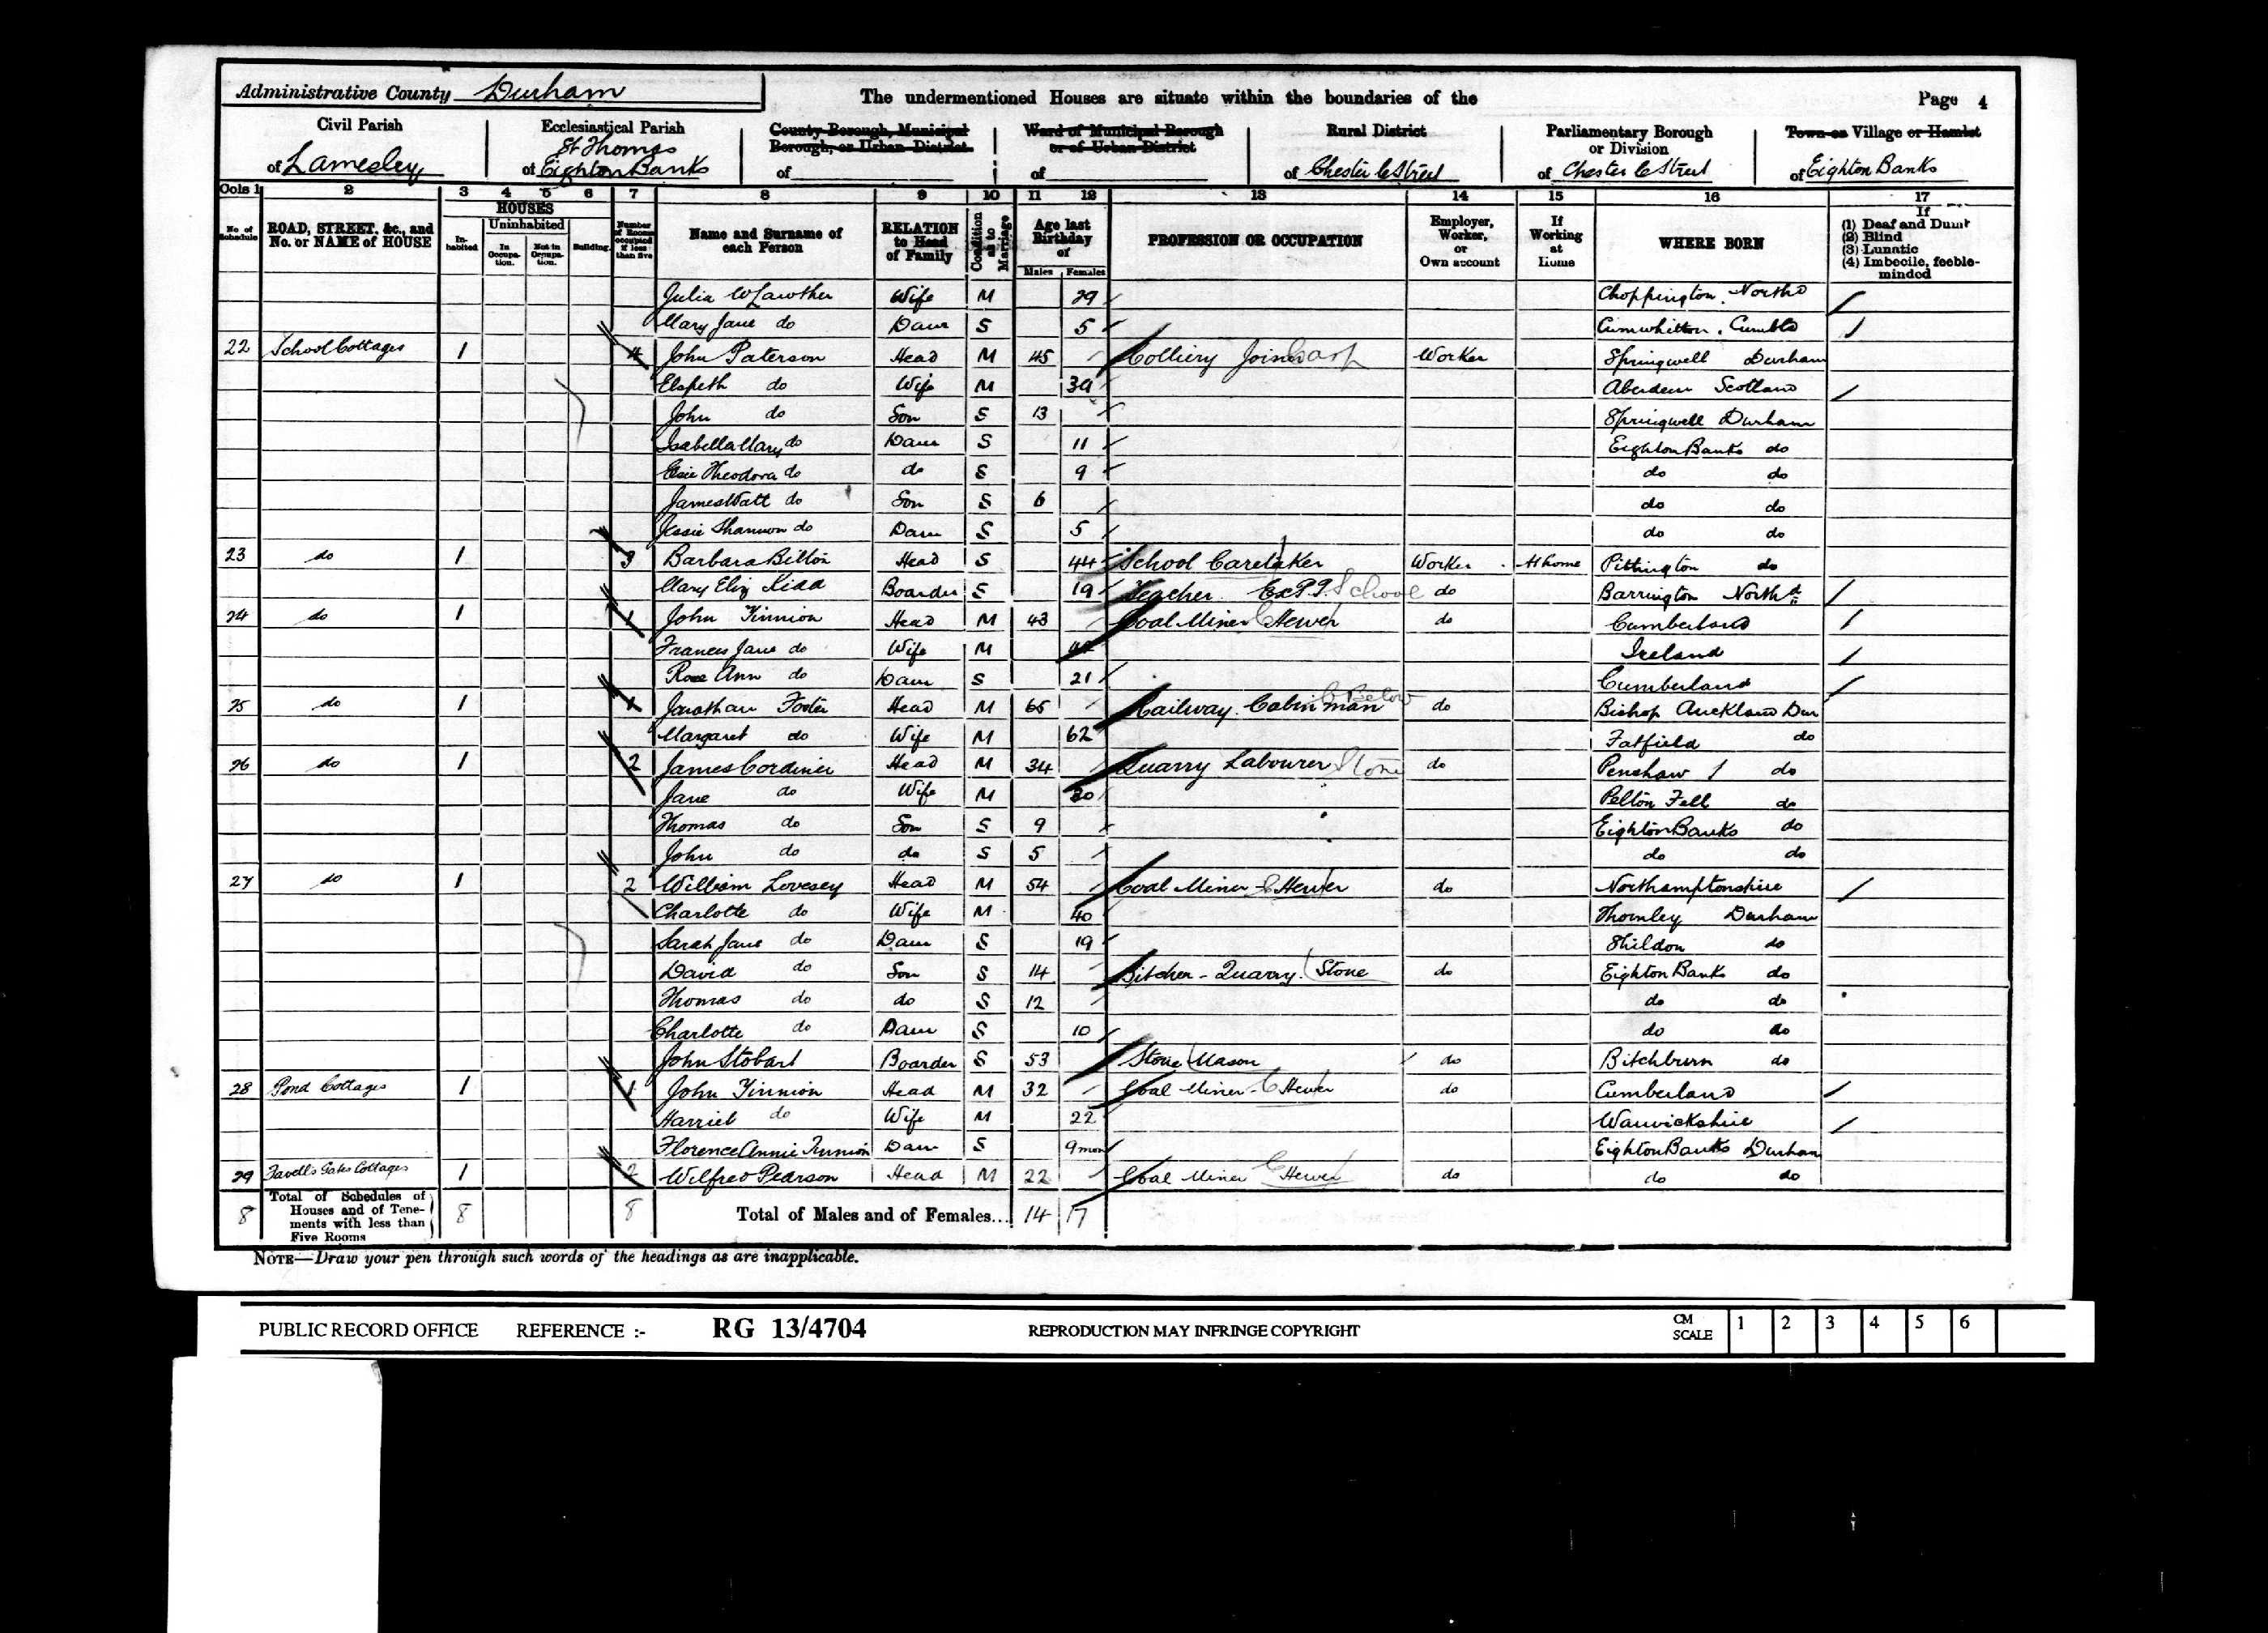 Administrative County Durham
The undermentioned Houses are situate within the boundaries of the
Page 4
Civil Parish
of Lamesley
Ecclesiastical Parish
St Thomas
of Eighton Banks
County Borough, Municipal
Borough, or Urban District
of
Ward of Municipal Borough
or of Urban District
of
Rural District
of Chester le Street
Parliamentary Borough
or Division
of Chester le Street
Town or Village or Hamlet
of Eighton Banks
Cols 1 2 3 4 5 6 7 8 9 10 11 12 13 14 15 16 17
No. of Schedule
ROAD, STREET, &c., and
No. or NAME of HOUSE
HOUSES
In-habited
Uninhabited
In Occupa-tion.
Not in Occupa-tion.
Building.
Number of Rooms occupied if less than five
Name and Surname of
each Person
RELATION
to Head
of Family
Condition as to Marriage
Age last
Birthday
of
Males Females
PROFESSION OR OCCUPATION
Employer,
Worker,
or
Own account
If
Working
at
Home
WHERE BORN
If
(1) Deaf and Dumb
(2) Blind
(3) Lunatic
(4) Imbecile, feeble-
minded
Julia W Lawther Wife M 29 Choppington Northd
Mary Jane do Daur S 5 Cumwhitton, Cumbld
22 School Cottages 1 4 John Paterson Head M 45 Colliery Joiner Carp Worker Springwell Durham
Elspeth do Wife M 39 Aberdeen Scotland
John do Son S 13 Springwell Durham
Isabella Mary do Daur S 11 Eighton Banks do
Elsie Theodora do do S 9 do do
James Watt do Son S 6 do do
Jessie Shannon do Daur S 5 do do
23 do 1 3 Barbara Bilton Head S 44 School Caretaker Worker At home Pittington do
Mary Eliz Kidd Boarder S 19 Teacher Ex P.T. School do Barrington Northd
24 do 1 1 John Tinnion Head M 43 Coal Miner Hewer do Cumberland
Frances Jane do Wife M Ireland
Rose Ann do Daur S 21 Cumberland
25 do 1 1 Jonathan Foster Head M 65 Railway Cabin man do Bishop Auckland Dur
Margaret do Wife M 62 Fatfield do
26 do 1 2 James Cordiner Head M 34 Quarry Labourer Stone do Penshaw do
Jane do Wife M 30 Pelton Fell do
Thomas do Son S 9 Eighton Banks do
John do do S 5 do do
27 do 1 2 William Lovesey Head M 54 Coal Miner Hewer do Northamptonshire
Charlotte do Wife M 40 Thornley Durham
Sarah Jane do Daur S 19 Shildon do
David do Son S 14 Bitcher - Quarry Stone do Eighton Banks do
Thomas do do S 12 do do
Charlotte do Daur S 10 do do
John Stobart Boarder S 53 Stone Mason do Bitchburn do
28 Pond Cottages 1 1 John Tinnion Head M 32 Coal Miner - Hewer do Cumberland
Harriet do Wife M 22 Warwickshire
Florence Annie Tinnion Daur S 9 mon Eighton Banks Durham
29 Cottages 1 2 Wilfred Pearson Head M 22 Coal Miner Hewer do do do
8 Total of Schedules of
Houses and of Tene-
ments with less than
Five Rooms 8 8 Total of Males and of Females... 14 17
NOTE—Draw your pen through such words of the headings as are inapplicable.
PUBLIC RECORD OFFICE REFERENCE :- RG 13/4704 REPRODUCTION MAY INFRINGE COPYRIGHT CM SCALE 1 2 3 4 5 6